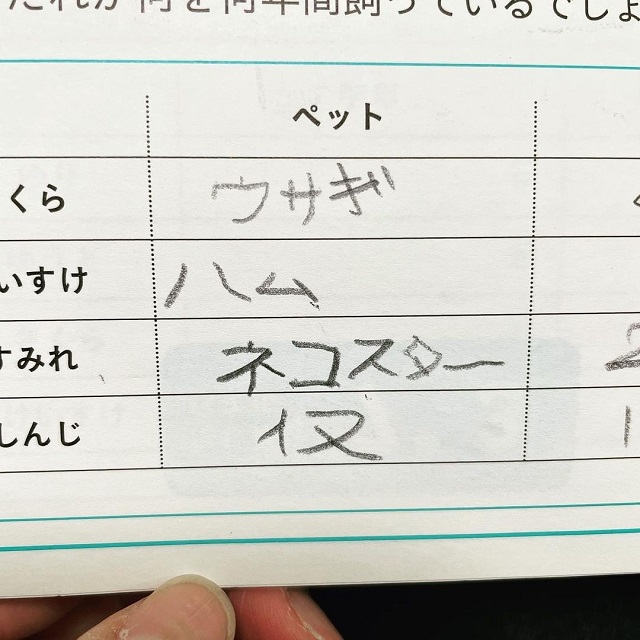 だれが何を何年間飼っているでしょ
ペット
くら ウサギ
いすけ ハム
すみれ ネコスター 2
しんじ イヌ 1